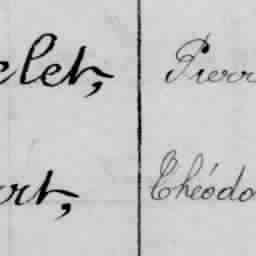 elet, Pierr
ort, Théodo